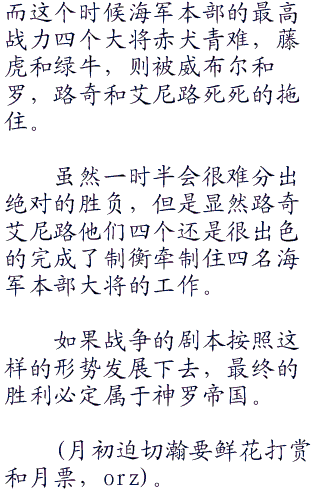 而这个时候海军本部的最高
战力四个大将赤犬青难，藤
虎和绿牛，则被威布尔和
罗，路奇和艾尼路死死的拖
住。
虽然一时半会很难分出
绝对的胜负，但是显然路奇
艾尼路他们四个还是很出色
的完成了制衡牵制住四名海
军本部大将的工作。
如果战争的剧本按照这
样的形势发展下去，最终的
胜利必定属于神罗帝国。
(月初迫切瀚要鲜花打赏
和月票，orz)。